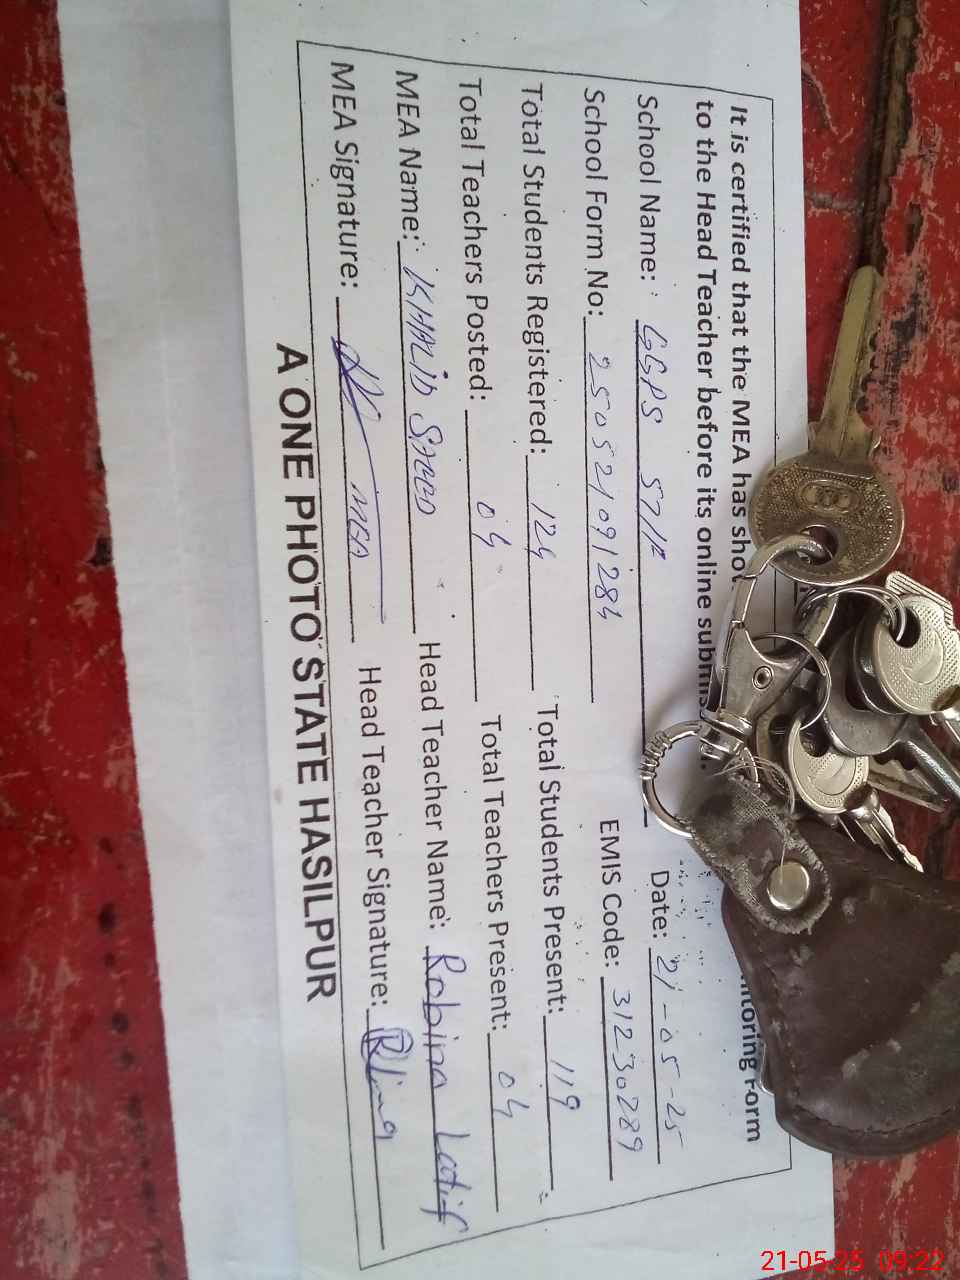 ntoring Form
It is certified that the MEA has sho
to the Head Teacher before its online submis
School Name: GGPS 57/F Date: 21-05-25
School Form No: 250521091284 EMIS Code: 31230289
Total Students Registered: 124 Total Students Present: 119
Total Teachers Posted: 04 Total Teachers Present: 04
MEA Name: KHALID SAEED Head Teacher Name: Robina Latif
MEA Signature: MEA Head Teacher Signature:
A ONE PHOTO STATE HASILPUR
21-05-25 09:22